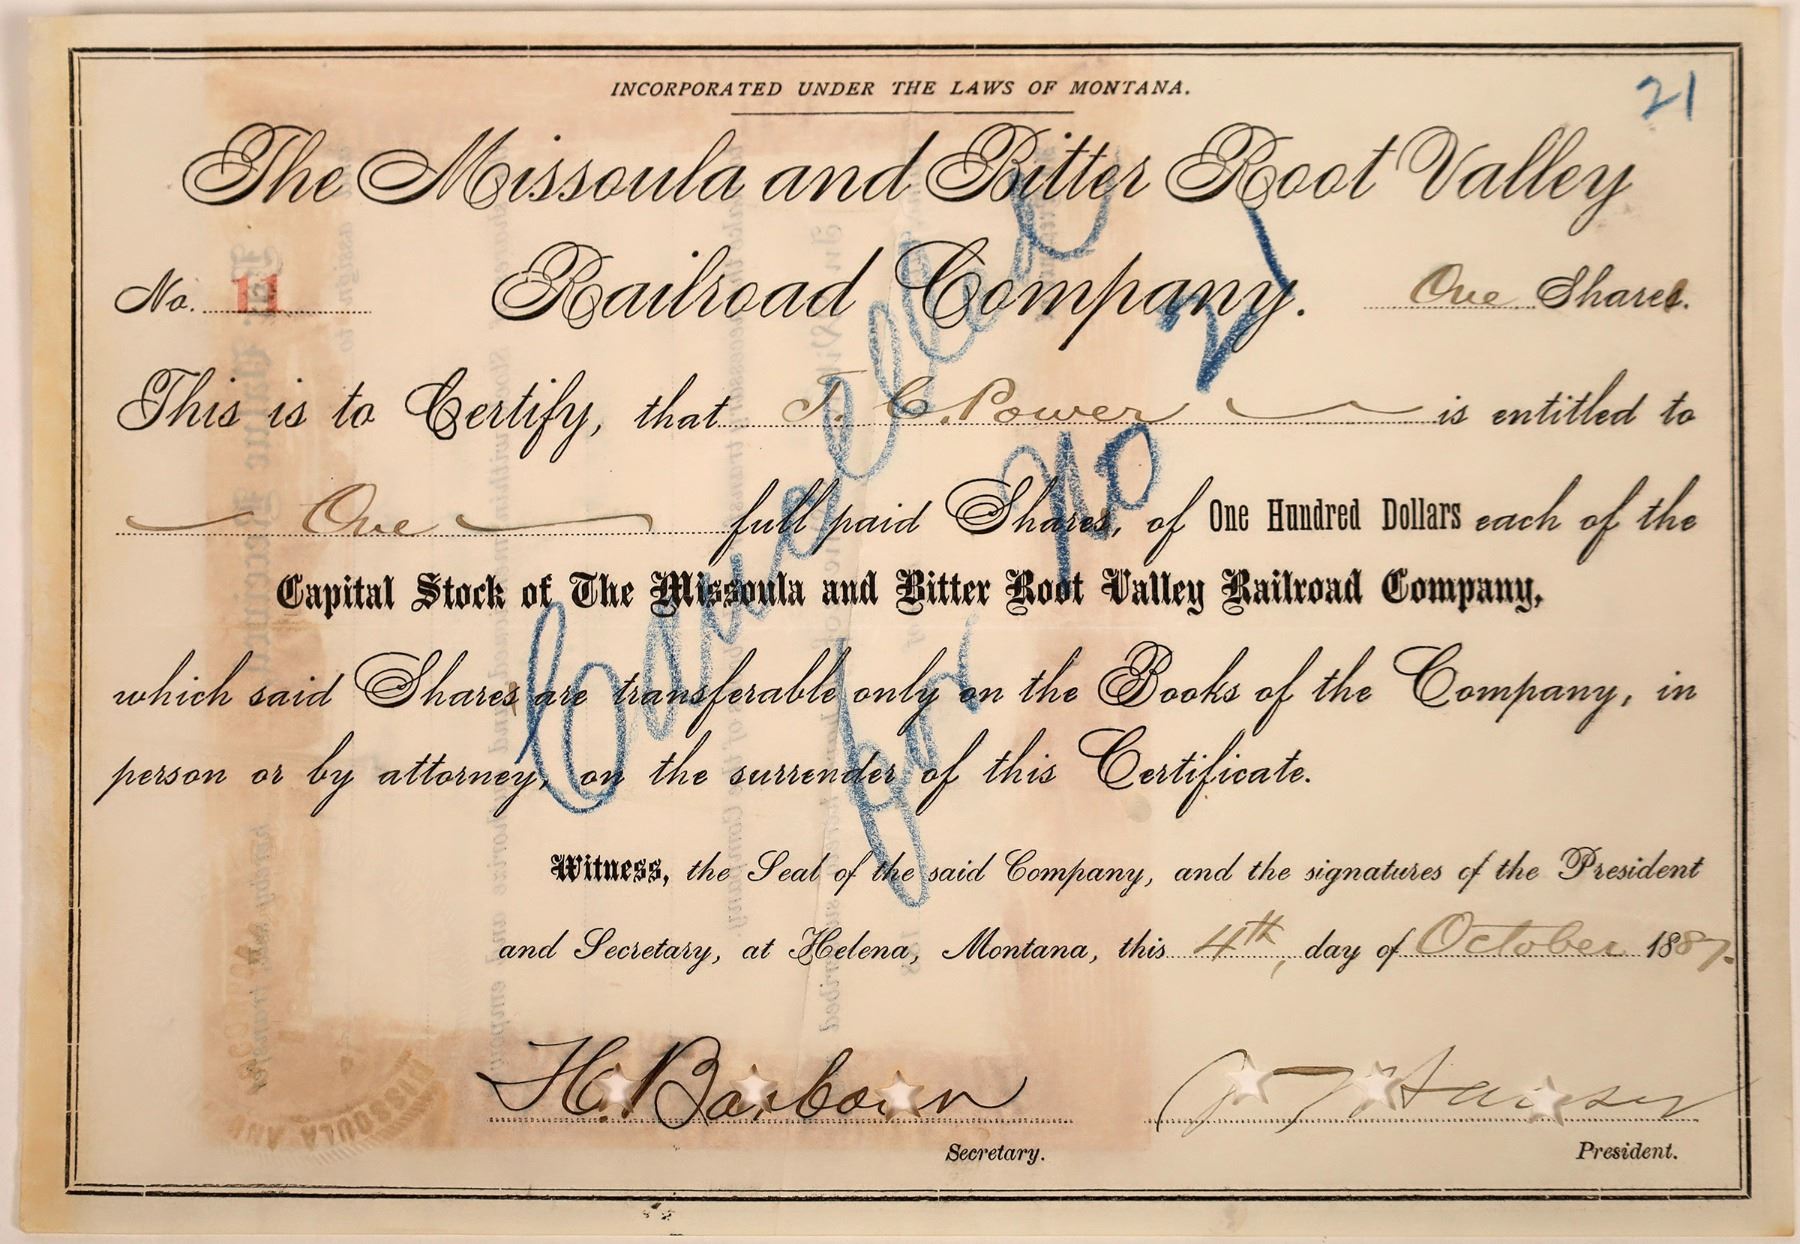 INCORPORATED UNDER THE LAWS OF MONTANA.
21
The Missoula and Bitter Root Valley
No. 11 Railroad Company. One Shares.
This is to Certify, that T. C. Power is entitled to
One full paid Shares, of One Hundred Dollars each of the
Capital Stock of The Missoula and Bitter Root Valley Railroad Company,
which said Shares are transferable only on the Books of the Company, in
person or by attorney, on the surrender of this Certificate.
Cancelled
for No 21
Witness, the Seal of the said Company, and the signatures of the President
and Secretary, at Helena, Montana, this 4th, day of October 1887.
H. Barborn
Secretary. President.
MISSOULA AND